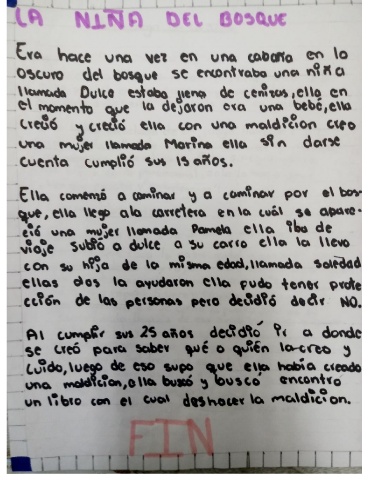 LA NIÑA DEL BOSQUE
Era hace una vez en una cabaña en lo
oscuro del bosque se encontraba una niña
llamada Dulce estaba llena de cenizas, ella en
el momento que la dejaron era una bebé, ella
creció y creció ella con una maldicion creo
una mujer llamada Marina ella sin darse
cuenta cumplió sus 15 años.
Ella comenzó a caminar y a caminar por el bos-
que, ella llego ala carretera en la cuál se apare-
ció una mujer llamada Pamela ella iba de
viaje subió a dulce a su carro ella la llevo
con su hija de la misma edad, llamada soledad
ellas dos la ayudaron ella pudo tener prote
cción de las personas pero decidió decir NO.
Al cumplir sus 25 años decidió ir a donde
se creó para saber qué o quién la creo y
cuido, luego de eso supo que ella había creado
una maldicion, ella buscó y buscó encontro
un libro con el cual deshacer la maldicion.
FIN